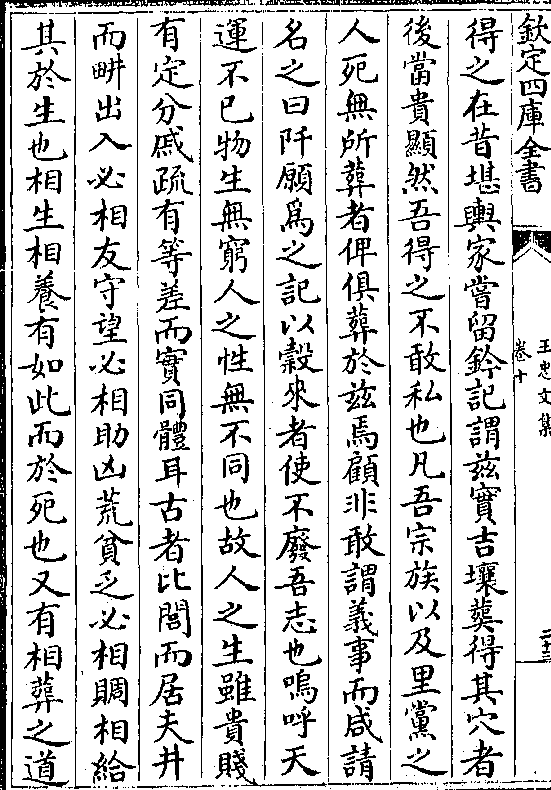 欽定四庫全書
王忠文集
卷十
二十三
得之在昔堪輿家嘗留鈐記謂兹實吉壤𦵏得其穴者
後當貴顯然吾得之不敢私也凡吾宗族以及里黨之
人死無所葬者俾俱葬於兹焉顧非敢謂義事而咸請
名之曰阡願爲之記以糓來者使不廢吾志也嗚呼天
運不已物生無窮人之性無不同也故人之生雖貴賤
有定分戚疏有等差而實同體耳古者比閭而居夫井
而畊出入必相友守望必相助凶荒貧乏必相賙相給
其於生也相生相養有如此而於死也又有相葬之道